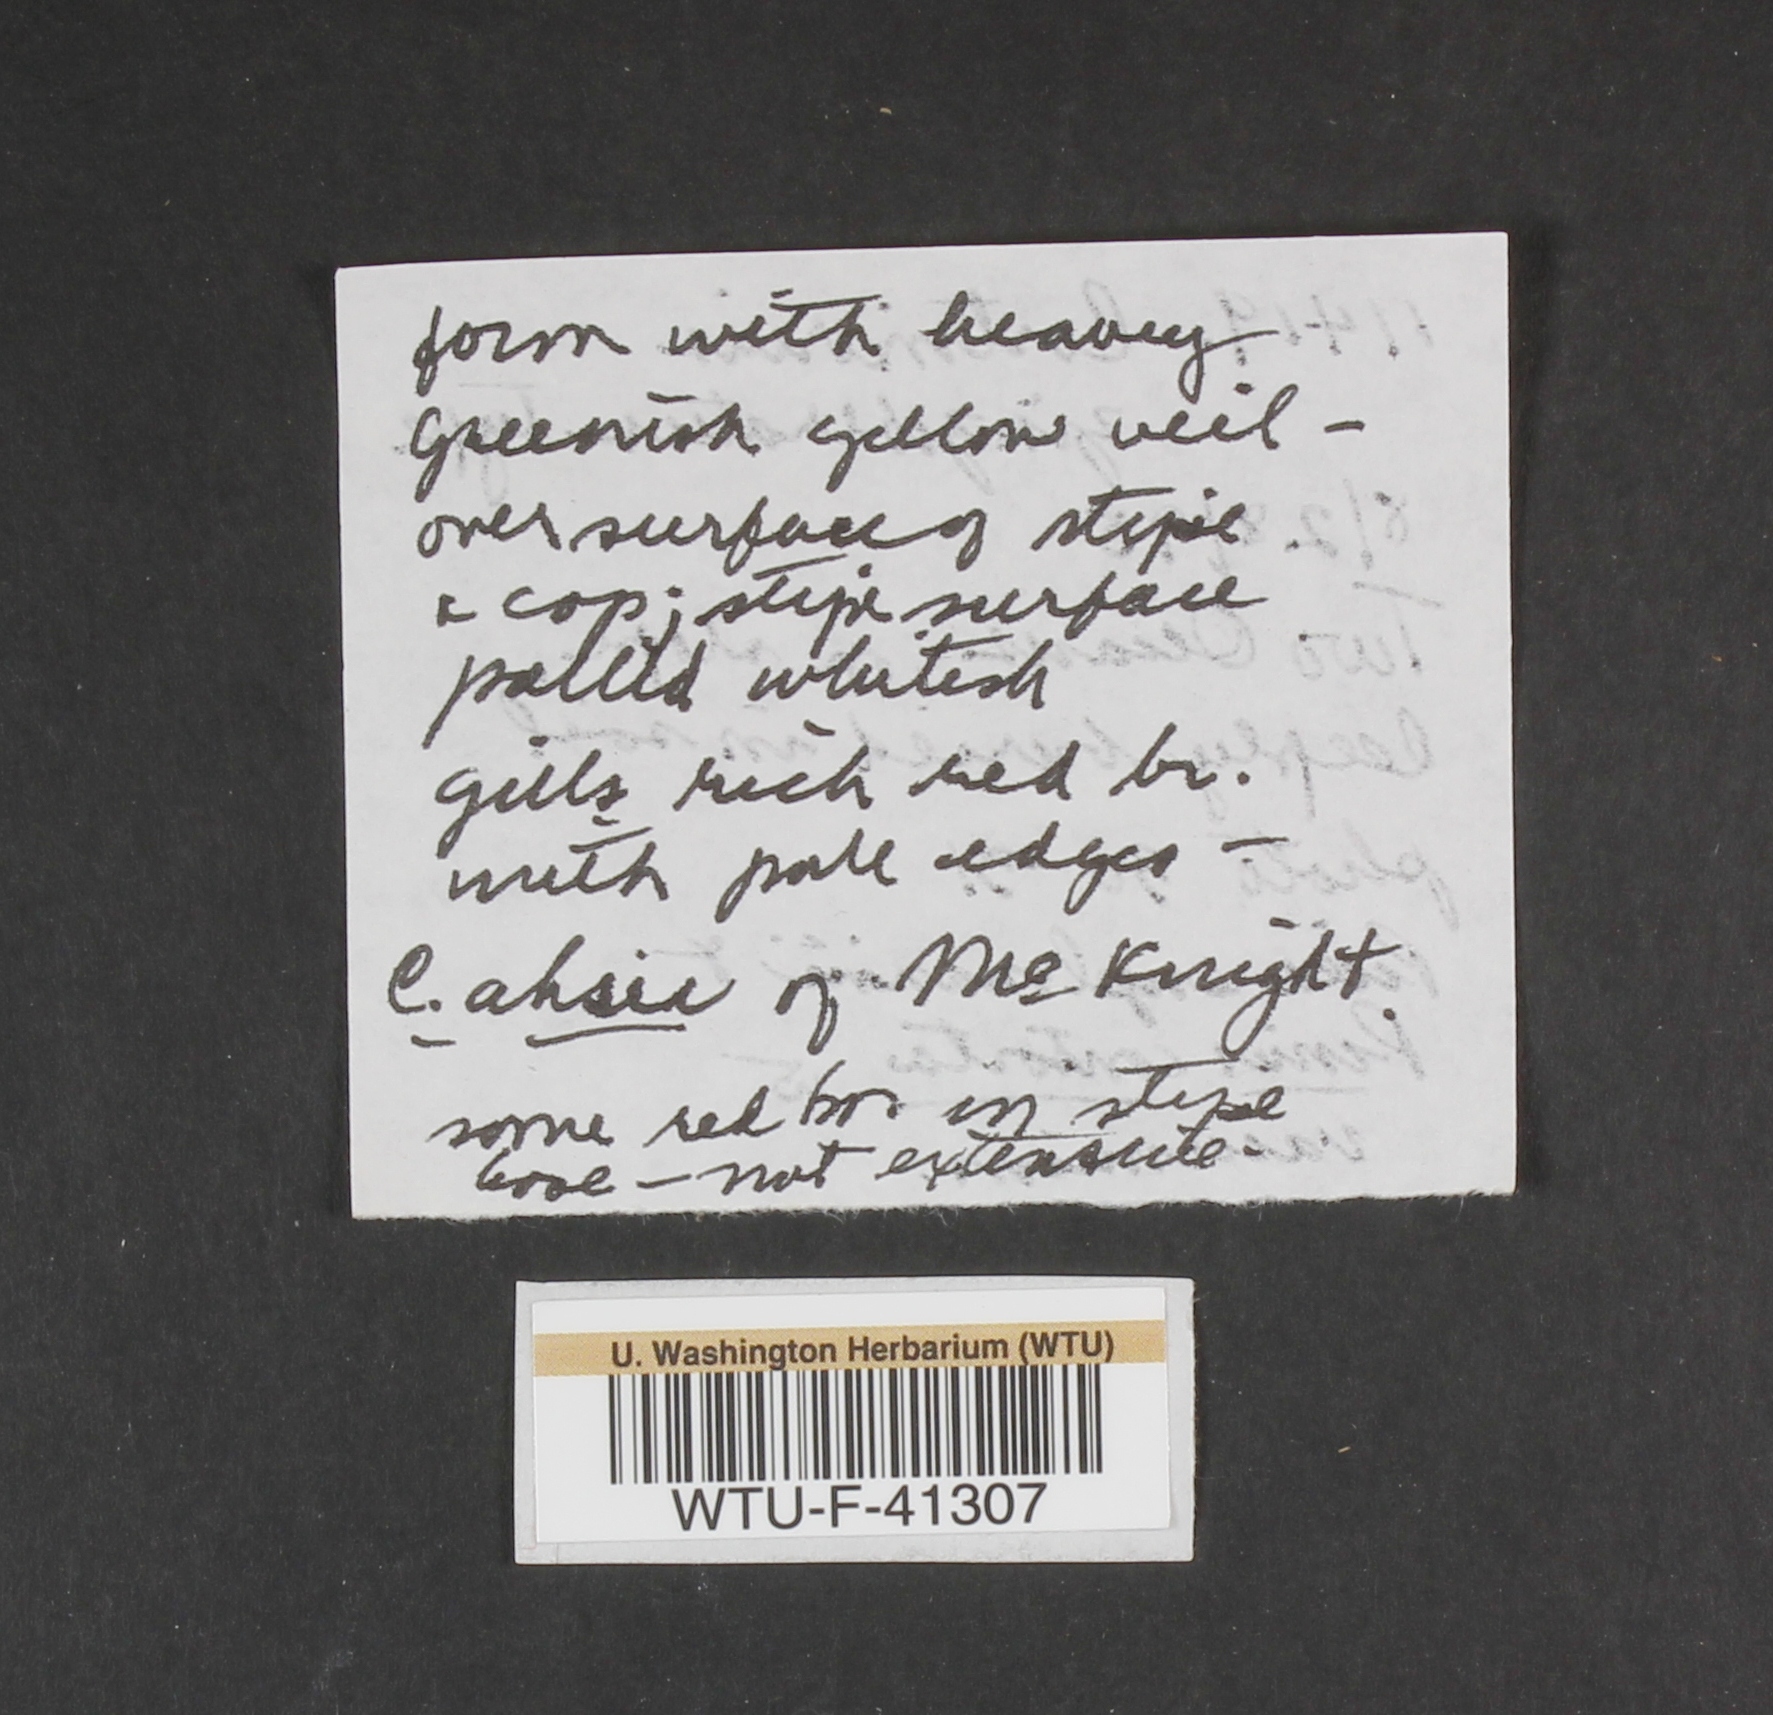 form with heavey
Greenish yellow veil -
over surface of stipe
& cap; stipe surface
pallid whitish
gills rich red br.
with pale edges -
C. ahsii of McKnight.
some red br. in stipe
base - not extensive.
U. Washington Herbarium (WTU)
WTU-F-41307